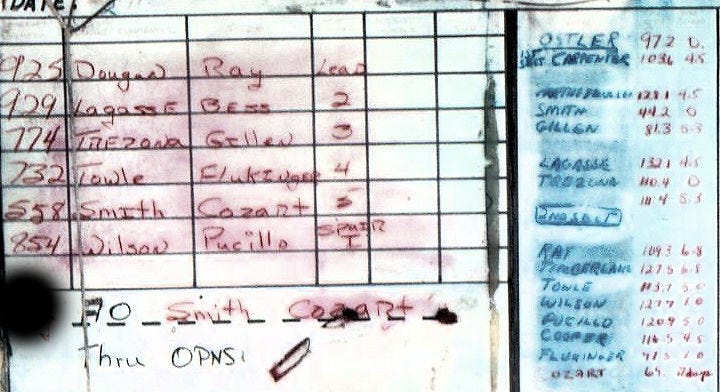 DATE:
925 Dougan Ray Lead
929 Lagasse Bess 2
774 TREZONA Gillen 3
732 Towle Flukinger 4
558 Smith Cozart 5
854 Wilson Pucillo SPARE 1
70 Smith Cozart
Thru OPNS
OSTLER 972 0
CARPENTER 1036 4.5
128.1 4.5
SMITH 44.2 0
GILLEN 81.3 5.3
LAGASSE 132.1 4.5
TREZONA 110.4 0
111.4 5.3
RAY 109.3 6.8
TIMBERLAKE 127.5 6.8
TOWLE 113.7 5.0
WILSON 127.7 1.0
PUCILLO 120.9 5.0
COOPER 116.5 4.5
FLUKINGER 97.5 1.0
COZART 69. 7 days